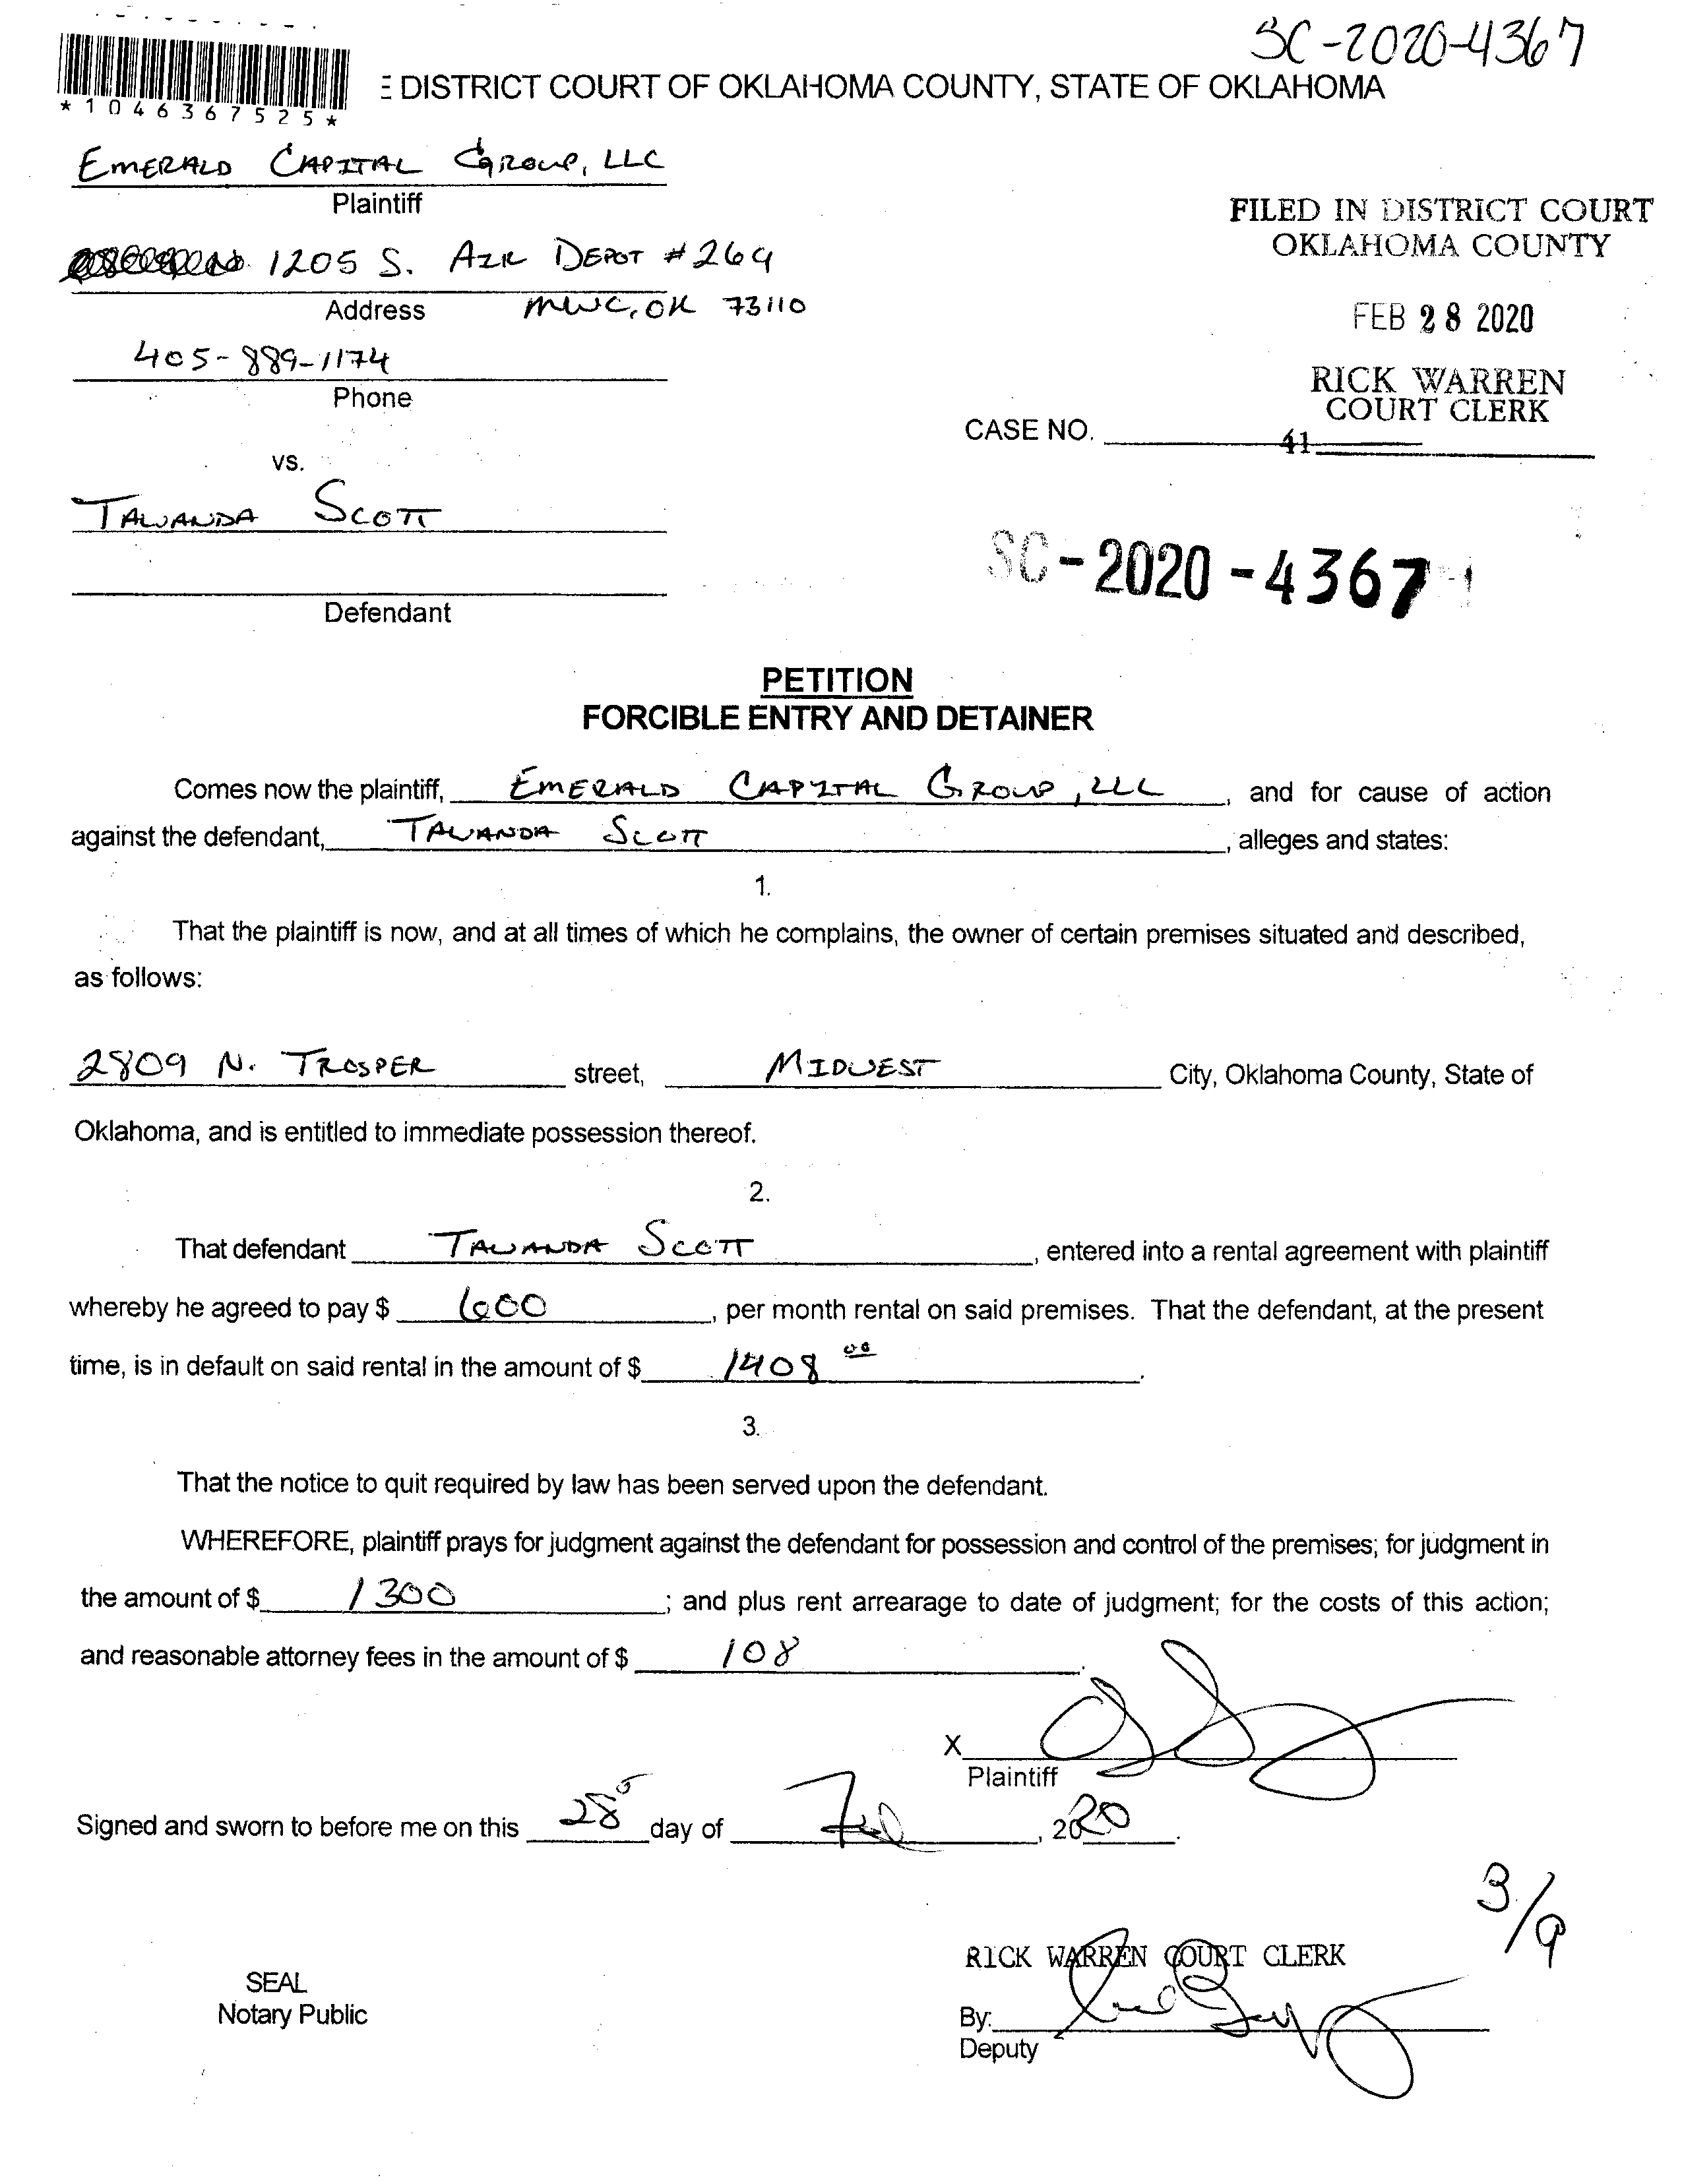 SC-2020-4367
DISTRICT COURT OF OKLAHOMA COUNTY, STATE OF OKLAHOMA
*1046367525*
EMERALD CAPITAL GROUP, LLC
Plaintiff
1205 S. AIR DEPOT #264
Address MWC, OK 73110
405-889-1174
Phone
FILED IN DISTRICT COURT
OKLAHOMA COUNTY
FEB 28 2020
RICK WARREN
COURT CLERK
CASE NO.
41
vs.
TAWANDA SCOTT
Defendant
SC-2020-4367
PETITION
FORCIBLE ENTRY AND DETAINER
Comes now the plaintiff, EMERALD CAPITAL GROUP, LLC, and for cause of action
against the defendant, TAWANDA SCOTT, alleges and states:
1.
That the plaintiff is now, and at all times of which he complains, the owner of certain premises situated and described,
as follows:
2809 N. TROSPER street, MIDWEST City, Oklahoma County, State of
Oklahoma, and is entitled to immediate possession thereof.
2.
That defendant TAWANDA SCOTT, entered into a rental agreement with plaintiff
whereby he agreed to pay $ 600, per month rental on said premises. That the defendant, at the present
time, is in default on said rental in the amount of $ 1408 00.
3.
That the notice to quit required by law has been served upon the defendant.
WHEREFORE, plaintiff prays for judgment against the defendant for possession and control of the premises; for judgment in
the amount of $ 1300; and plus rent arrearage to date of judgment; for the costs of this action;
and reasonable attorney fees in the amount of $ 108.
X
Plaintiff
Signed and sworn to before me on this 28 day of Feb, 2020.
3/9
RICK WARREN COURT CLERK
SEAL
Notary Public
By:
Deputy